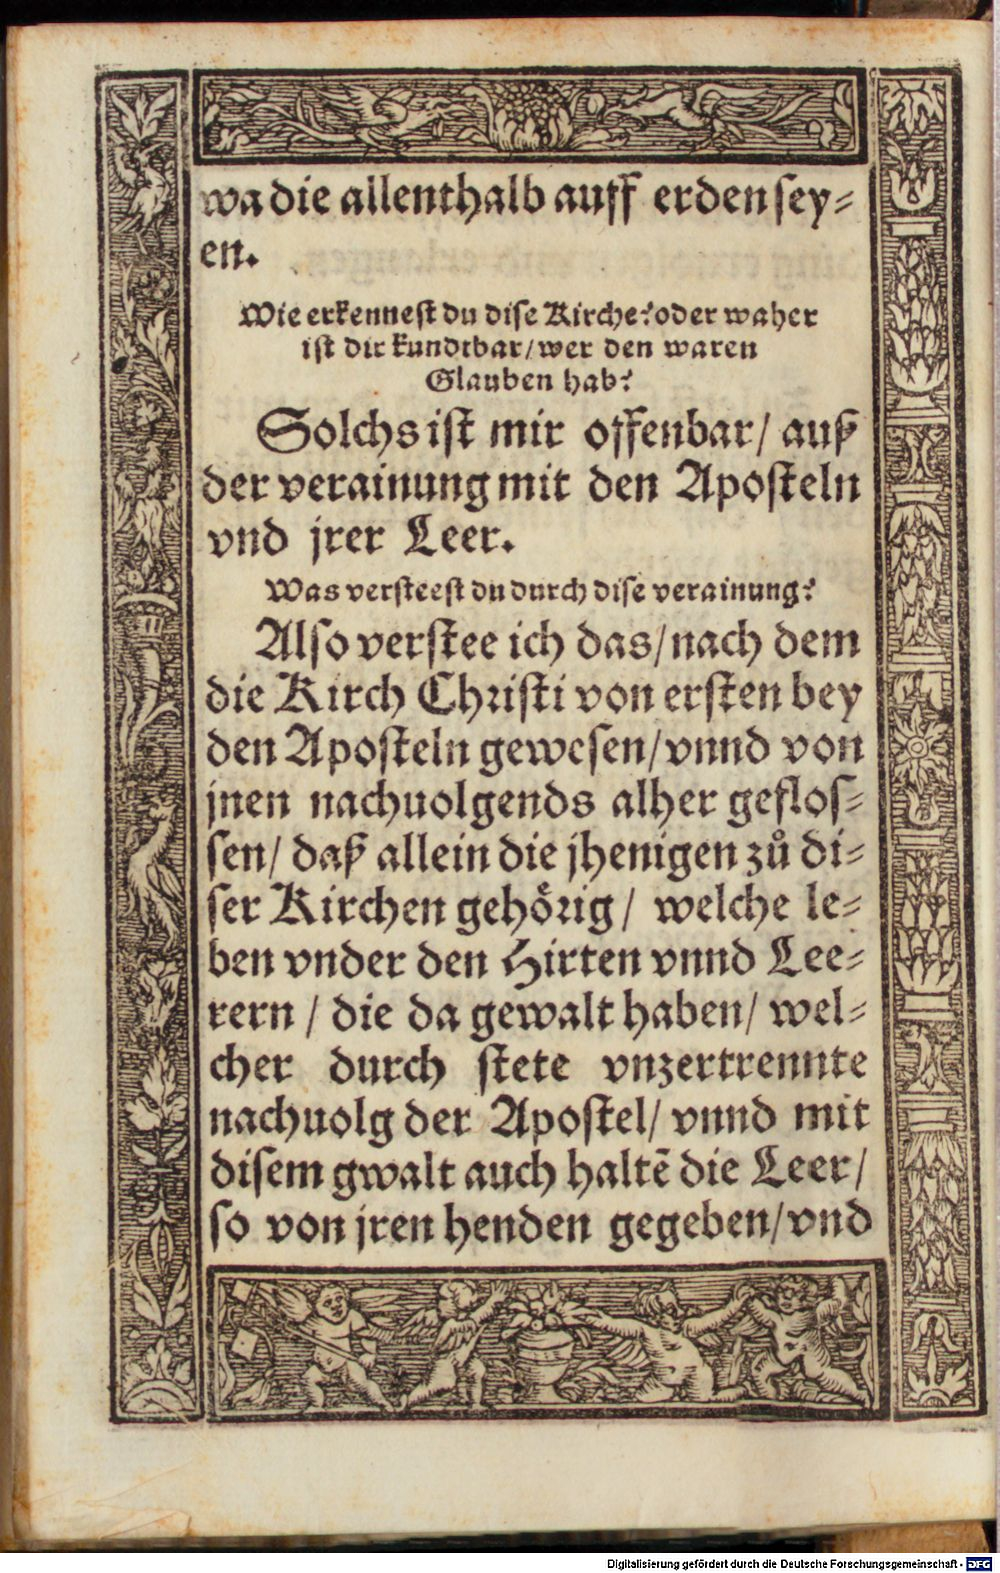 wa die allenthalb auff erden sey⸗
en.
Wie erkennest du dise Kirche? oder waher
ist dir kundtbar/ wer den waren
Glauben hab?
Solchs ist mir offenbar/ auß
der verainung mit den Aposteln
vnd jrer Leer.
Was versteest du durch dise verainung?
Also verstee ich das/ nach dem
die Kirch Christi von ersten bey
den Aposteln gewesen/ vnnd von
jnen nachuolgends alher geflos⸗
sen/ daß allein die jhenigen zů di⸗
ser Kirchen gehörig/ welche le⸗
ben vnder den Hirten vnnd Lee⸗
rern / die da gewalt haben/ wel⸗
cher durch stete vnzertrennte
nachuolg der Apostel/ vnnd mit
disem gwalt auch haltē die Leer/
so von jren henden gegeben/ vnd
Digitalisierung gefördert durch die Deutsche Forschungsgemeinschaft - DFG